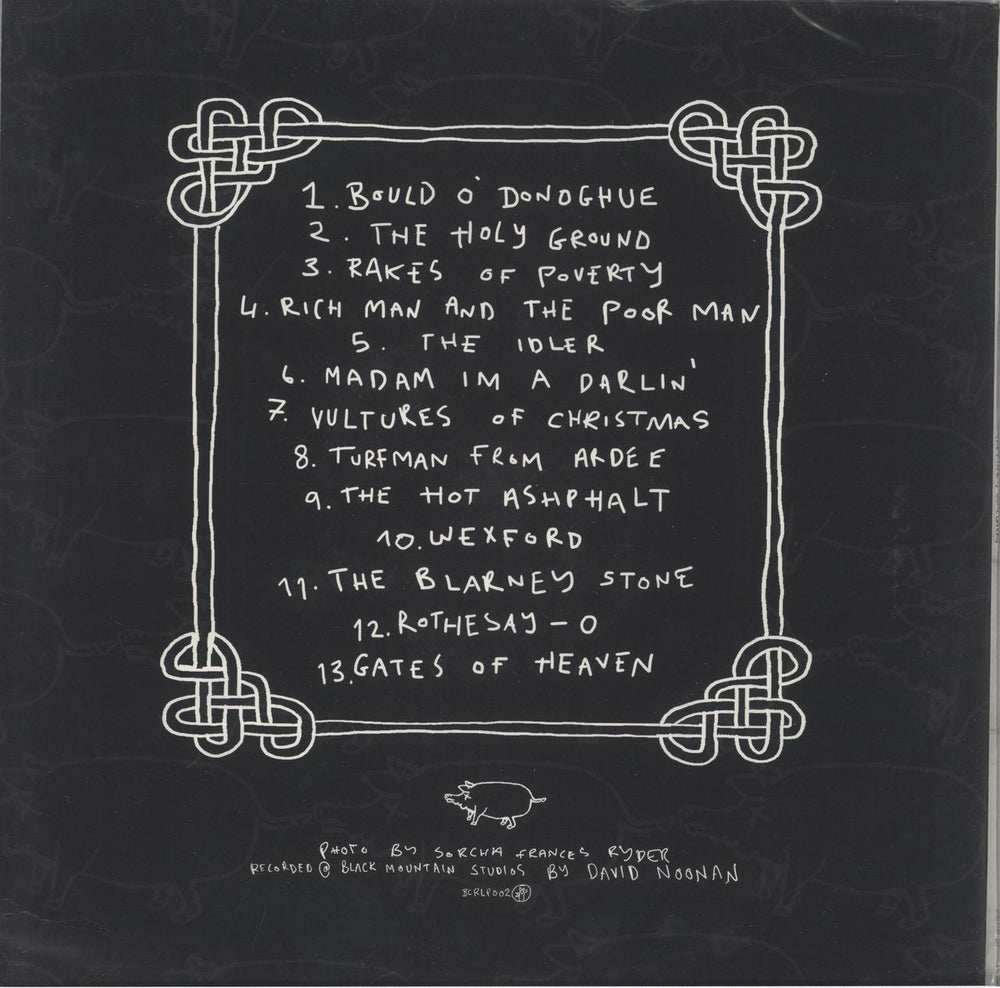 1. BOULD O' DONOGHUE
2. THE HOLY GROUND
3. RAKES OF POVERTY
4. RICH MAN AND THE POOR MAN
5. THE IDLER
6. MADAM IM A DARLIN'
7. VULTURES OF CHRISTMAS
8. TURFMAN FROM ARDEE
9. THE HOT ASHPHALT
10. WEXFORD
11. THE BLARNEY STONE
12. ROTHESAY - O
13. GATES OF HEAVEN
PHOTO BY SORCHA FRANCES RYDER
RECORDED @ BLACK MOUNTAIN STUDIOS BY DAVID NOONAN
BCRLP002